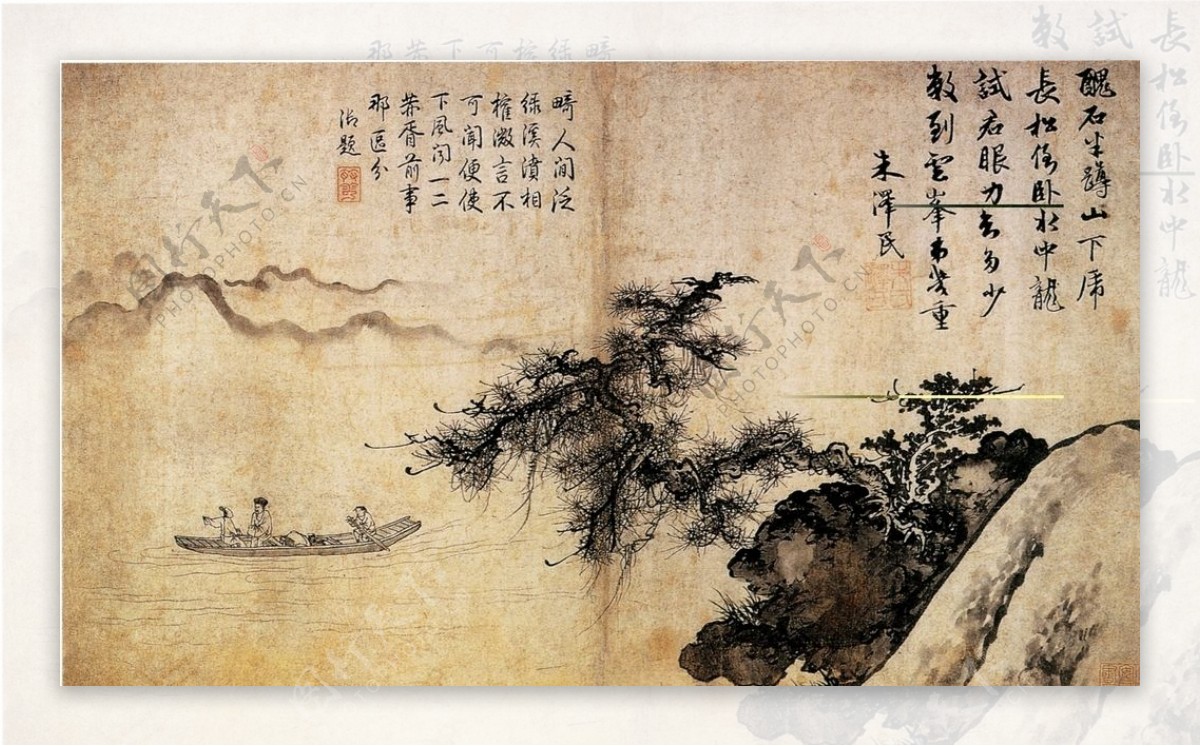 醜石半蹲山下虎
長松倒卧水中龍
試君眼力知多少
數到雲峯第幾重
朱澤民
畸人閒泛
緑溪濆相
榷微言不
可聞便使
下風聞一二
華胥前事
那區分
御題
图行天下
PHOTOPHOTO.CN